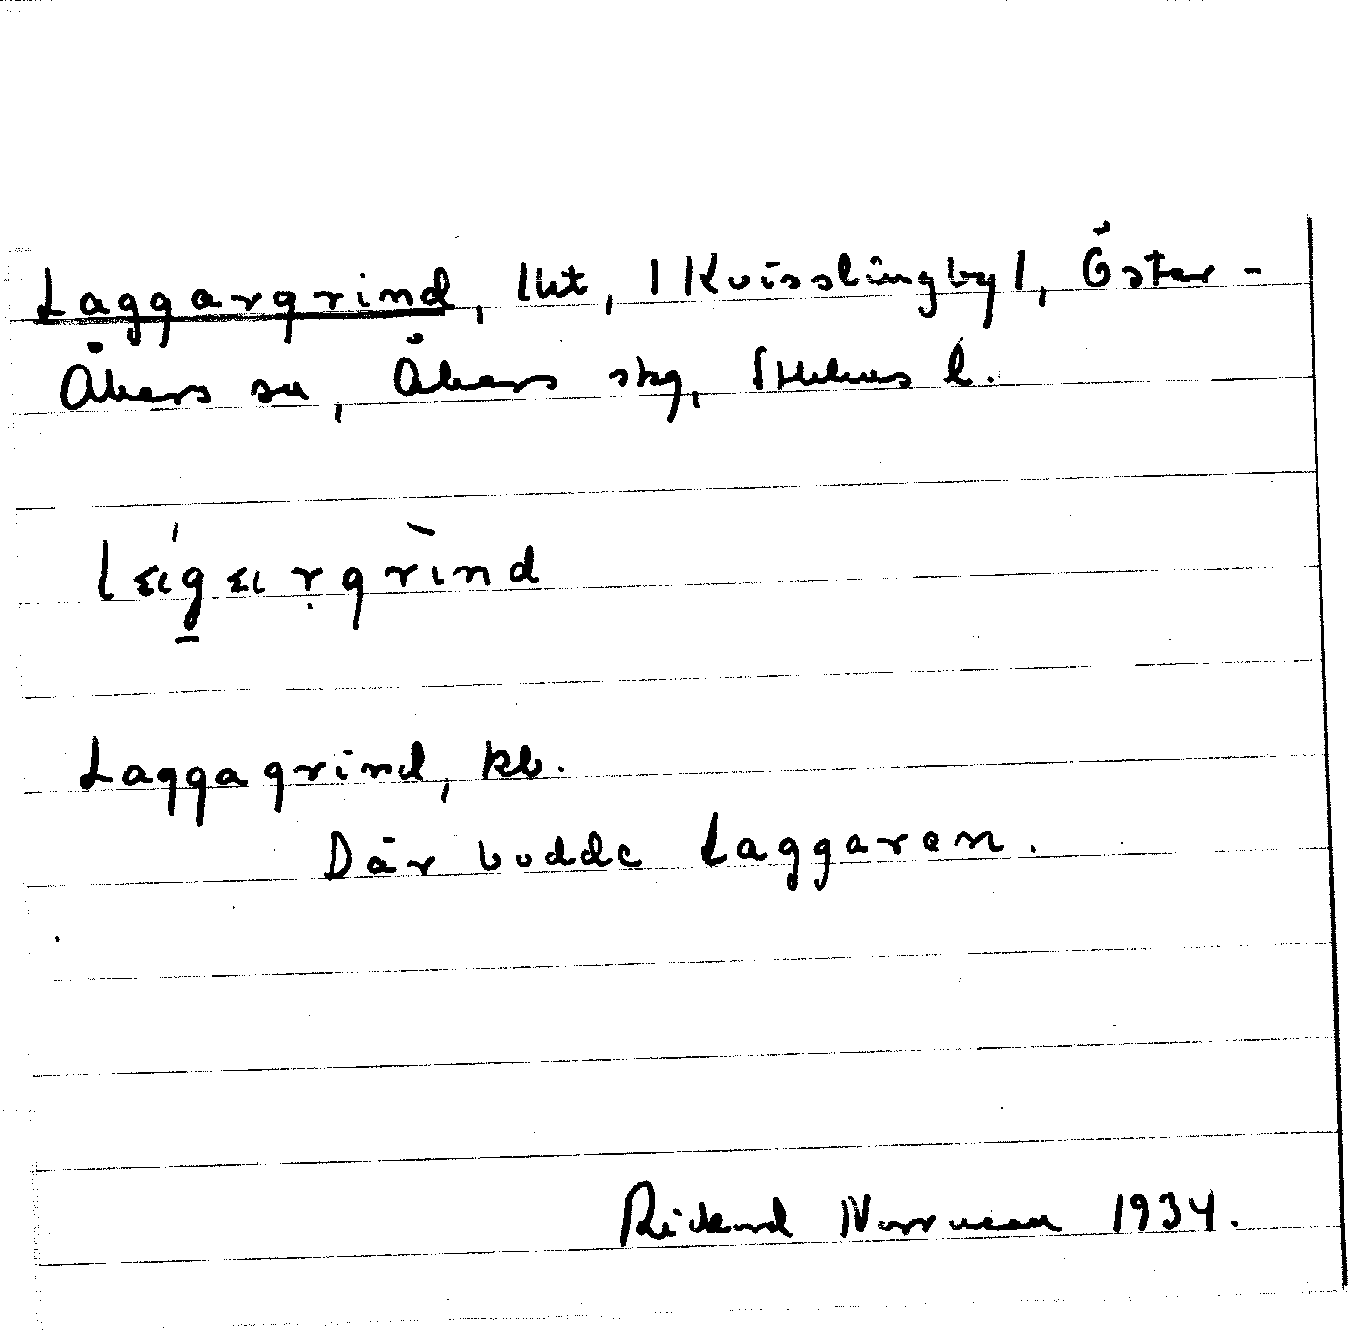 Laggargrind, lht, |Kvisslingby|, Öster-
Åkers sn, Åkers skg, Sthlms l.
Laggagrind, kb.
Där bodde Laggaren.
Rickard Norrman 1934.